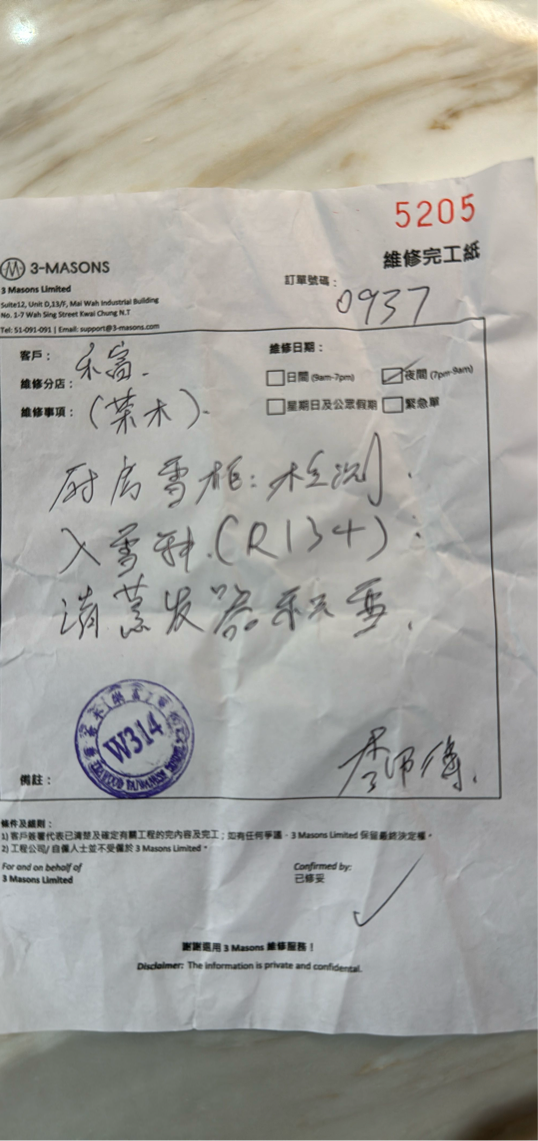 5205
維修完工紙
3-MASONS
3 Masons Limited
Suite12, Unit D,13/F, Mai Wah Industrial Building
No. 1-7 Wah Sing Street Kwai Chung N.T
Tel: 51-091-091 | Email: support@3-masons.com
訂單號碼：
0937
客戶：
禾富.
維修分店：
維修事項：
(葉木).
維修日期：
日間 (9am-7pm)
夜間 (7pm-9am)
星期日及公眾假期
緊急單
厨房雪柜: 检测.
入雪种.(R134):
清蒸发器积雪.
W314
備註：
李师傅.
條件及細則：
1) 客戶簽署代表已清楚及確定有關工程的完內容及完工；如有任何爭議，3 Masons Limited 保留最終決定權。
2) 工程公司/ 自僱人士並不受僱於 3 Masons Limited。
For and on behalf of
3 Masons Limited
Confirmed by:
已修妥
謝謝選用 3 Masons 維修服務！
Disclaimer: The information is private and confidental.